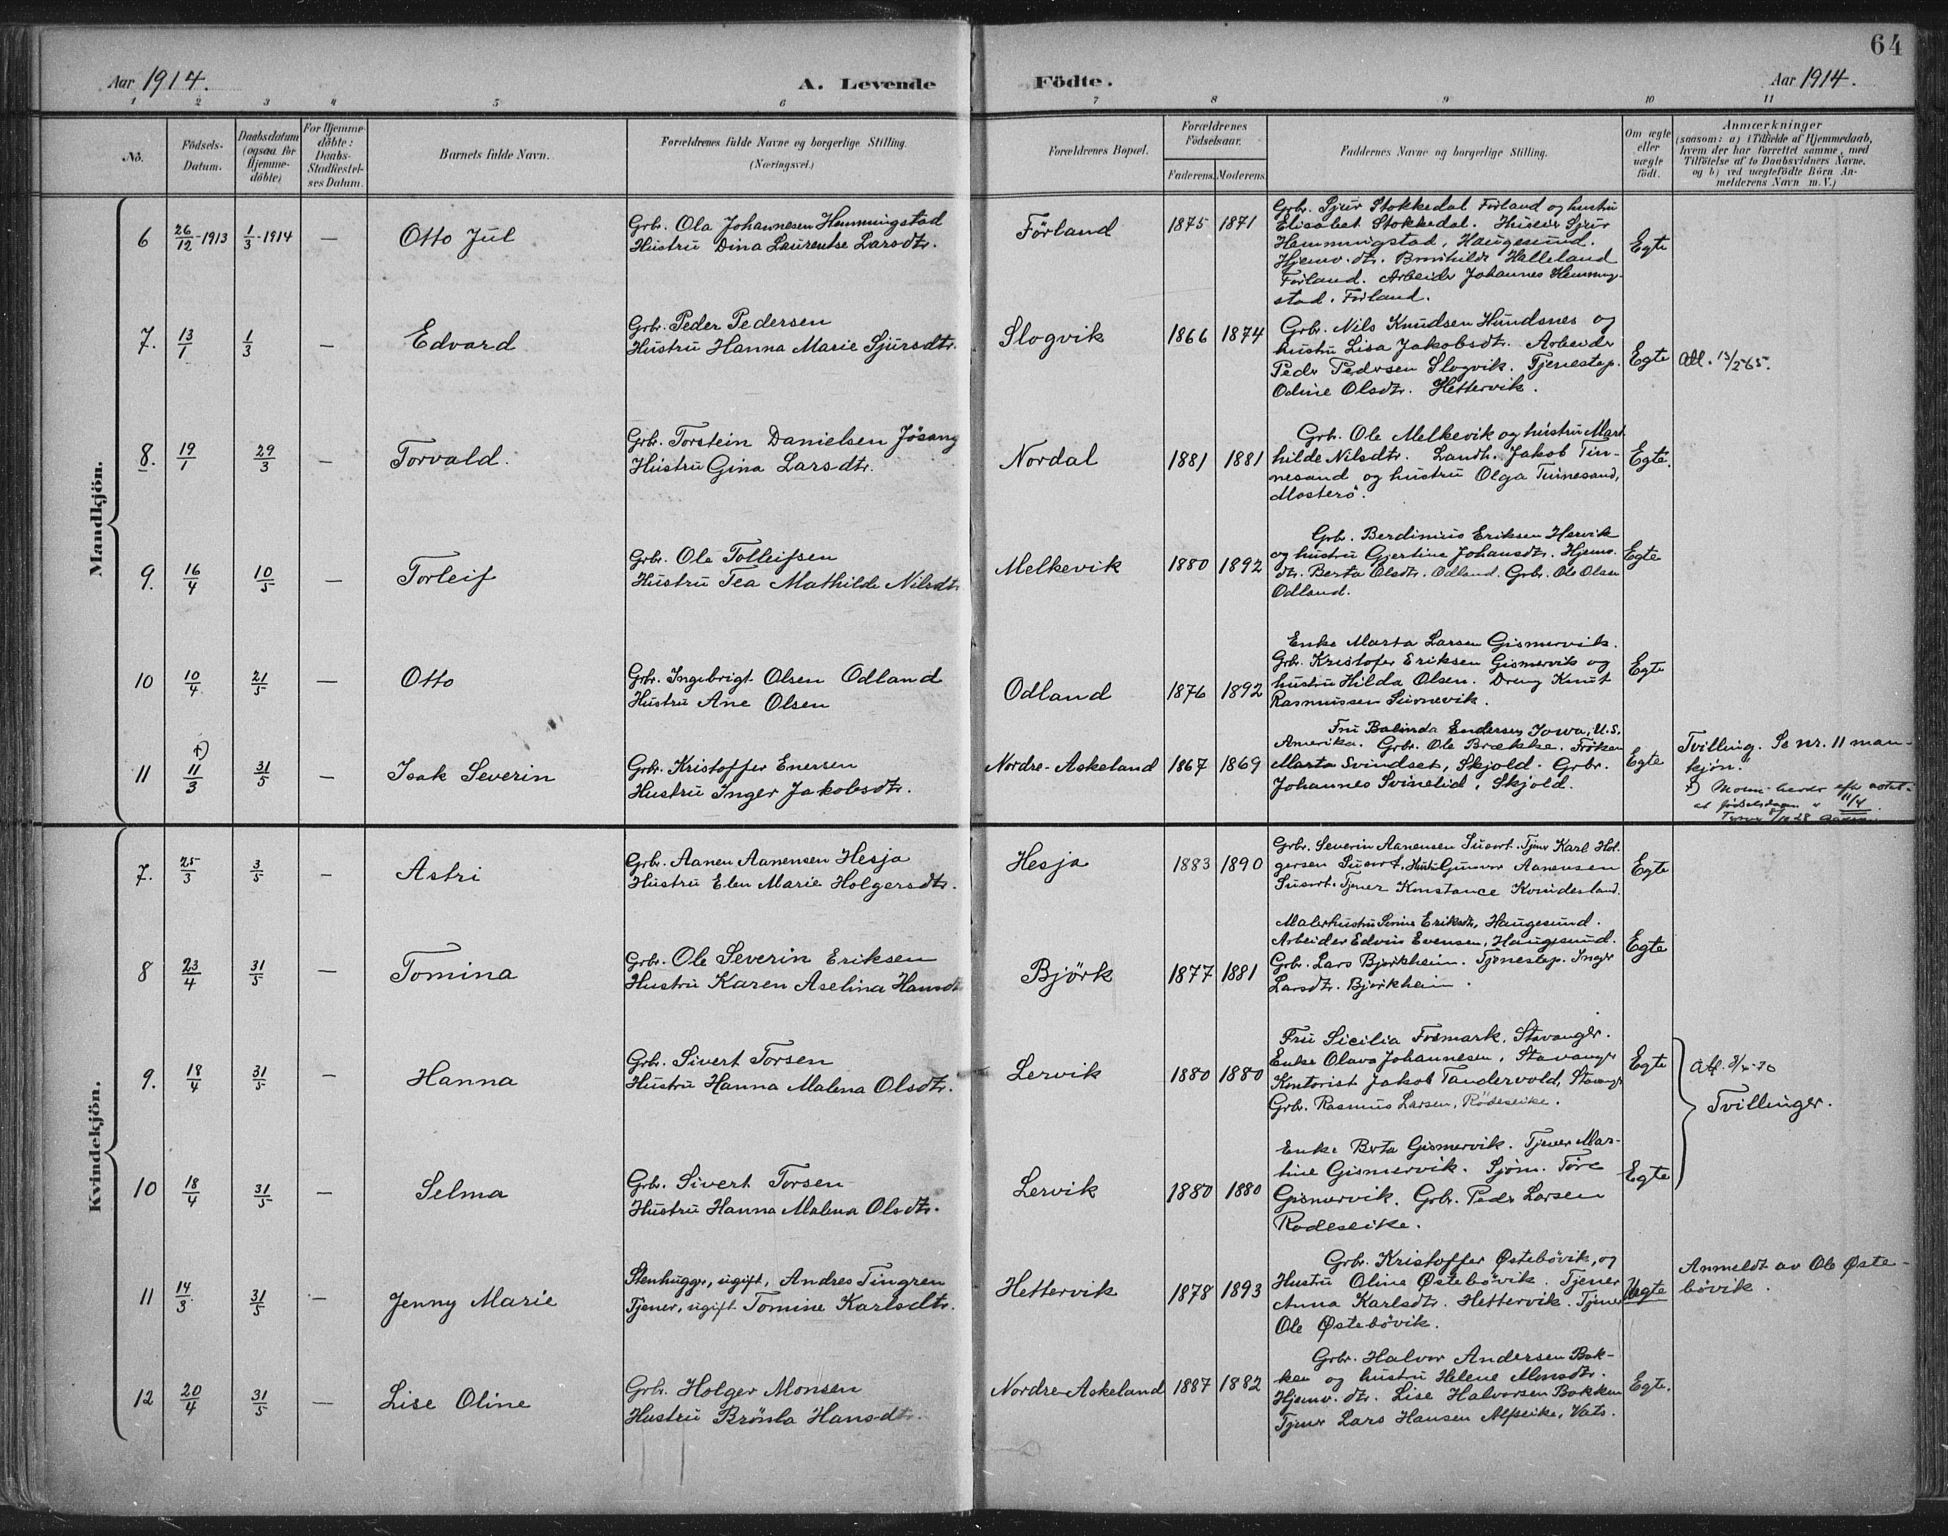 64
Aar 1914.
A. Levende Födte.
Aar 1914.
1 2 3 4 5 6 7 8 9 10 11
No.
Födsels-
Datum.
Daabsdatum
(ogsaa for
Hjemme-
döbte)
For Hjemme-
döbte:
Daabs-
Stadfæstel-
ses Datum.
Barnets fulde Navn.
Forældrenes fulde Navne og borgerlige Stilling.
(Næringsvei.)
Forældrenes Bopæl.
Forældrenes
Födselsaar.
Faderens. Moderens.
Faddernes Navne og borgerlige Stilling.
Om ægte
eller
uægte
födt.
Anmærkninger
(saasom: a) i Tilfælde af Hjemmedaab,
hvem der har forrettet samme, med
Tilföielse af to Daabsvidners Navne.
og b) ved uægtefödte Börn An-
melderens Navn m. V.)
Mandkjön.
6 26/12-1913 1/3-1914 — Otto Jul
Grbr. Ola Johannesen Hemmingstad
Hustru Dina Laurentse Larsdtr.
Förland 1875 1871
Grbr. Sjur Stokkedal Förland og hustru
Elisabet Stokkedal. Huseier Sjur
Hemmingstad, Haugesund.
Hjemv. dtr. Brunhilde Helleland
Förland. Arbeider Johannes Hemming-
stad. Förland.
Egte
7. 13/1 1/3 — Edvard
Grbr. Peder Pedersen
Hustru Hanna Marie Sjursdtr.
Slogvik 1866 1874
Grbr. Nils Knudsen Hundsnes og
hustru Lisa Jakobsdtr. Arbeider
Peder Pedersen Slogvik. Tjenestep.
Odine Olsdtr. Hettervik.
Egte
8. 19/1 29/3 — Torvald.
Grbr. Torstein Danielsen Jösang
Hustru Gina Larsdtr.
Nordal 1881 1881
Grbr. Ole Melkevik og hustru Mart
hilde Nilsdtr. Landh. Jakob Tin-
nesand og hustru Olga Tinnesand,
Mosterö.
Egte.
9. 16/4 10/5 — Torleif
Grbr. Ole Tolleifsen
Hustru Tea Mathilde Nilsdtr.
Melkevik 1880 1892
Grbr. Berdinius Eriksen Hervik
og hustru Gjertine Johansdtr. Hjemv.
dtr. Berta Olsdtr. Odland. Grbr. Ole Olsen
Odland.
Egte
10 10/4 21/5 — Otto
Grbr. Ingebrigt Olsen Odland
Hustru Ane Olsen
Odland 1876 1892
Enke Marta Larsen Gismervik.
Grbr. Kristofer Eriksen Gismervik og
hustru Hilda Olsen. Dreng Knut
Rasmussen
Egte
11 +) 11/3 31/5 — Isak Severin
Grbr. Kristoffer Enersen
Hustru Inger Jakobsdtr.
Nordre-Askeland 1867 1869
Fru Balinda Endersen Iowa, U.S.
Amerika. Grbr. Ole Brække. Fröken
Marta Svindset, Skjold. Grbr.
Johannes Svinelid, Skjold.
Egte
Tvilling. Se nr. 11 man-
kjön.
Kvindekjön.
7. 25/3 3/5 — Astri
Grbr. Aanen Aanensen Hesja
Hustru Elen Marie Holgersdtr.
Hesja 1883 1890
Grbr. Severin Aanensen Susort. Tjener Karl Hol-
gersen Susort. Hustru Gunvor Aanensen
Susort. Tjener Konstance Kvindesland.
Egte
8 23/4 31/5 — Tomina
Grbr. Ole Severin Eriksen
Hustru Karen Aselina Hansdtr.
Bjørk 1877 1881
Malerhustru Serine Eriksdtr, Haugesund.
Arbeider Edvin Evensen, Haugesund.
Grbr. Lars Bjørkheim. Tjenestep. Inger
Larsdtr. Bjørkheim.
Egte
9. 18/4 31/5 — Hanna
Grbr. Sivert Torsen
Hustru Hanna Malena Olsdtr.
Lervik 1880 1880
Fru Sicilia Fosmark, Stavanger.
Enke Olava Johannesen, Stavanger
Kontorist Jakob Tandervold, Stavanger
Grbr. Rasmus Larsen, Rödeseike.
Egte
Tvillinger.
10 18/4 31/5 — Selma
Grbr. Sivert Torsen
Hustru Hanna Malena Olsdtr.
Lervik 1880 1880
Enke Berta Gismervik. Tjener Mar-
tine Gismervik. Sjöm. Töre
Gismervik. Grbr. Peder Larsen
Rødeseike.
Egte
11 14/3 31/5 — Jenny Marie
Stenhugger, ugift, Andres Tingren
Tjener, ugift Tomine Karlsdtr.
Hettervik 1878 1893
Grbr. Kristoffer Østebövik, og
Hustru Oline Østebövik. Tjener
Anna Karlsdtr. Hettervik. Tjener
Ole Østebövik.
Uegte
Anmeldt av Ole Øste-
bövik.
12 20/4 31/5 — Lise Oline
Grbr. Holger Monsen
Hustru Brönla Hansdtr.
Nordre-Askeland 1887 1882
Grbr. Halvor Andersen Bak-
ken og hustru Helene Monsdtr.
Hjemv. dtr. Lise Halvorsen Bakken
Tjener Lars Hansen Alfseike, Vats.
Egte.